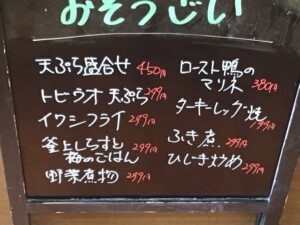 おそうざい
天ぷら盛合せ 450円
トビウオ 天ぷら 299円
イワシフライ 299円
釜上しらすと
梅のごはん 299円
野菜煮物 299円
ロースト鴨の
マリネ 380円
ターキーレッグ焼
199円
ふき煮 299円
ひじき炒め 299円